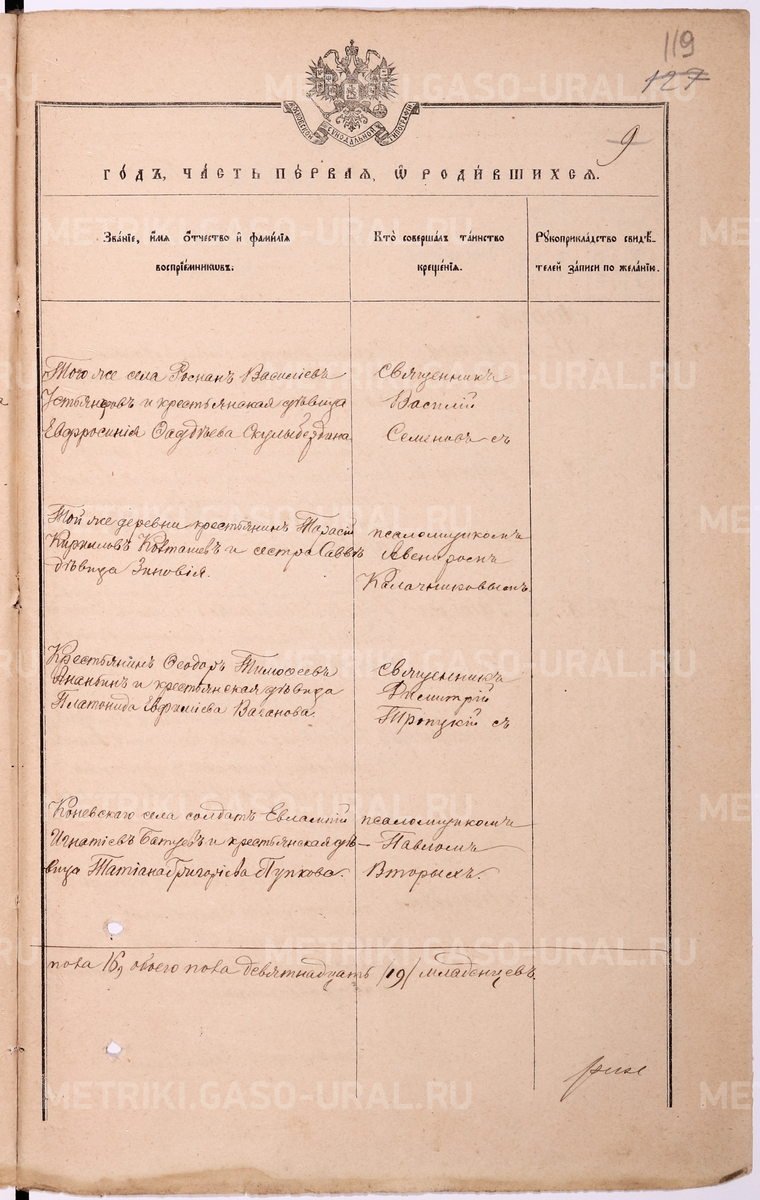 119
127
МОСКОВСКОЙ СѴНОДАЛЬНОЙ ТИПОГРАФІИ
9
ГОДЪ, ЧАСТЬ ПЕРВАЯ, Ѿ РОДИВШИХСЯ.
Званіе, имя отчество и фамилія воспріемниковъ.
Кто совершалъ таинство крещенія.
Рукоприкладство свидѣтелей записи по желанію.
Того же села Роман Василіевъ
и крестьянская дѣвица
Евфросинія Фаддѣева
Священникъ
Василій
Семеновъ съ
Той же деревни крестьянинъ Тарасій
Кирилловъ Ковташевъ и сестра Саввы
дѣвица Зиновія.
псаломщикомъ
Калачниковымъ
Крестьянинъ Ѳеодоръ Тимоѳеевъ
Ананьинъ и крестьянская дѣвица
Платонида Евфиміева Ваганова.
Священникъ
Димитрій
Троицкій съ
Коневскаго села солдатъ Евлампій
Игнатіевъ Батуевъ и крестьянская дѣ-
вица Татіана Григоріева Пупкова.
псаломщикомъ
Павломъ
Вторыхъ.
пола 16, обоего пола девятнадцать /19/ младенцевъ.
METRIKI.GASO-URAL.RU